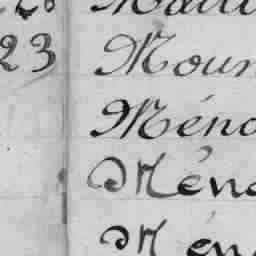 23 Mour
Méno
Méno
Mén